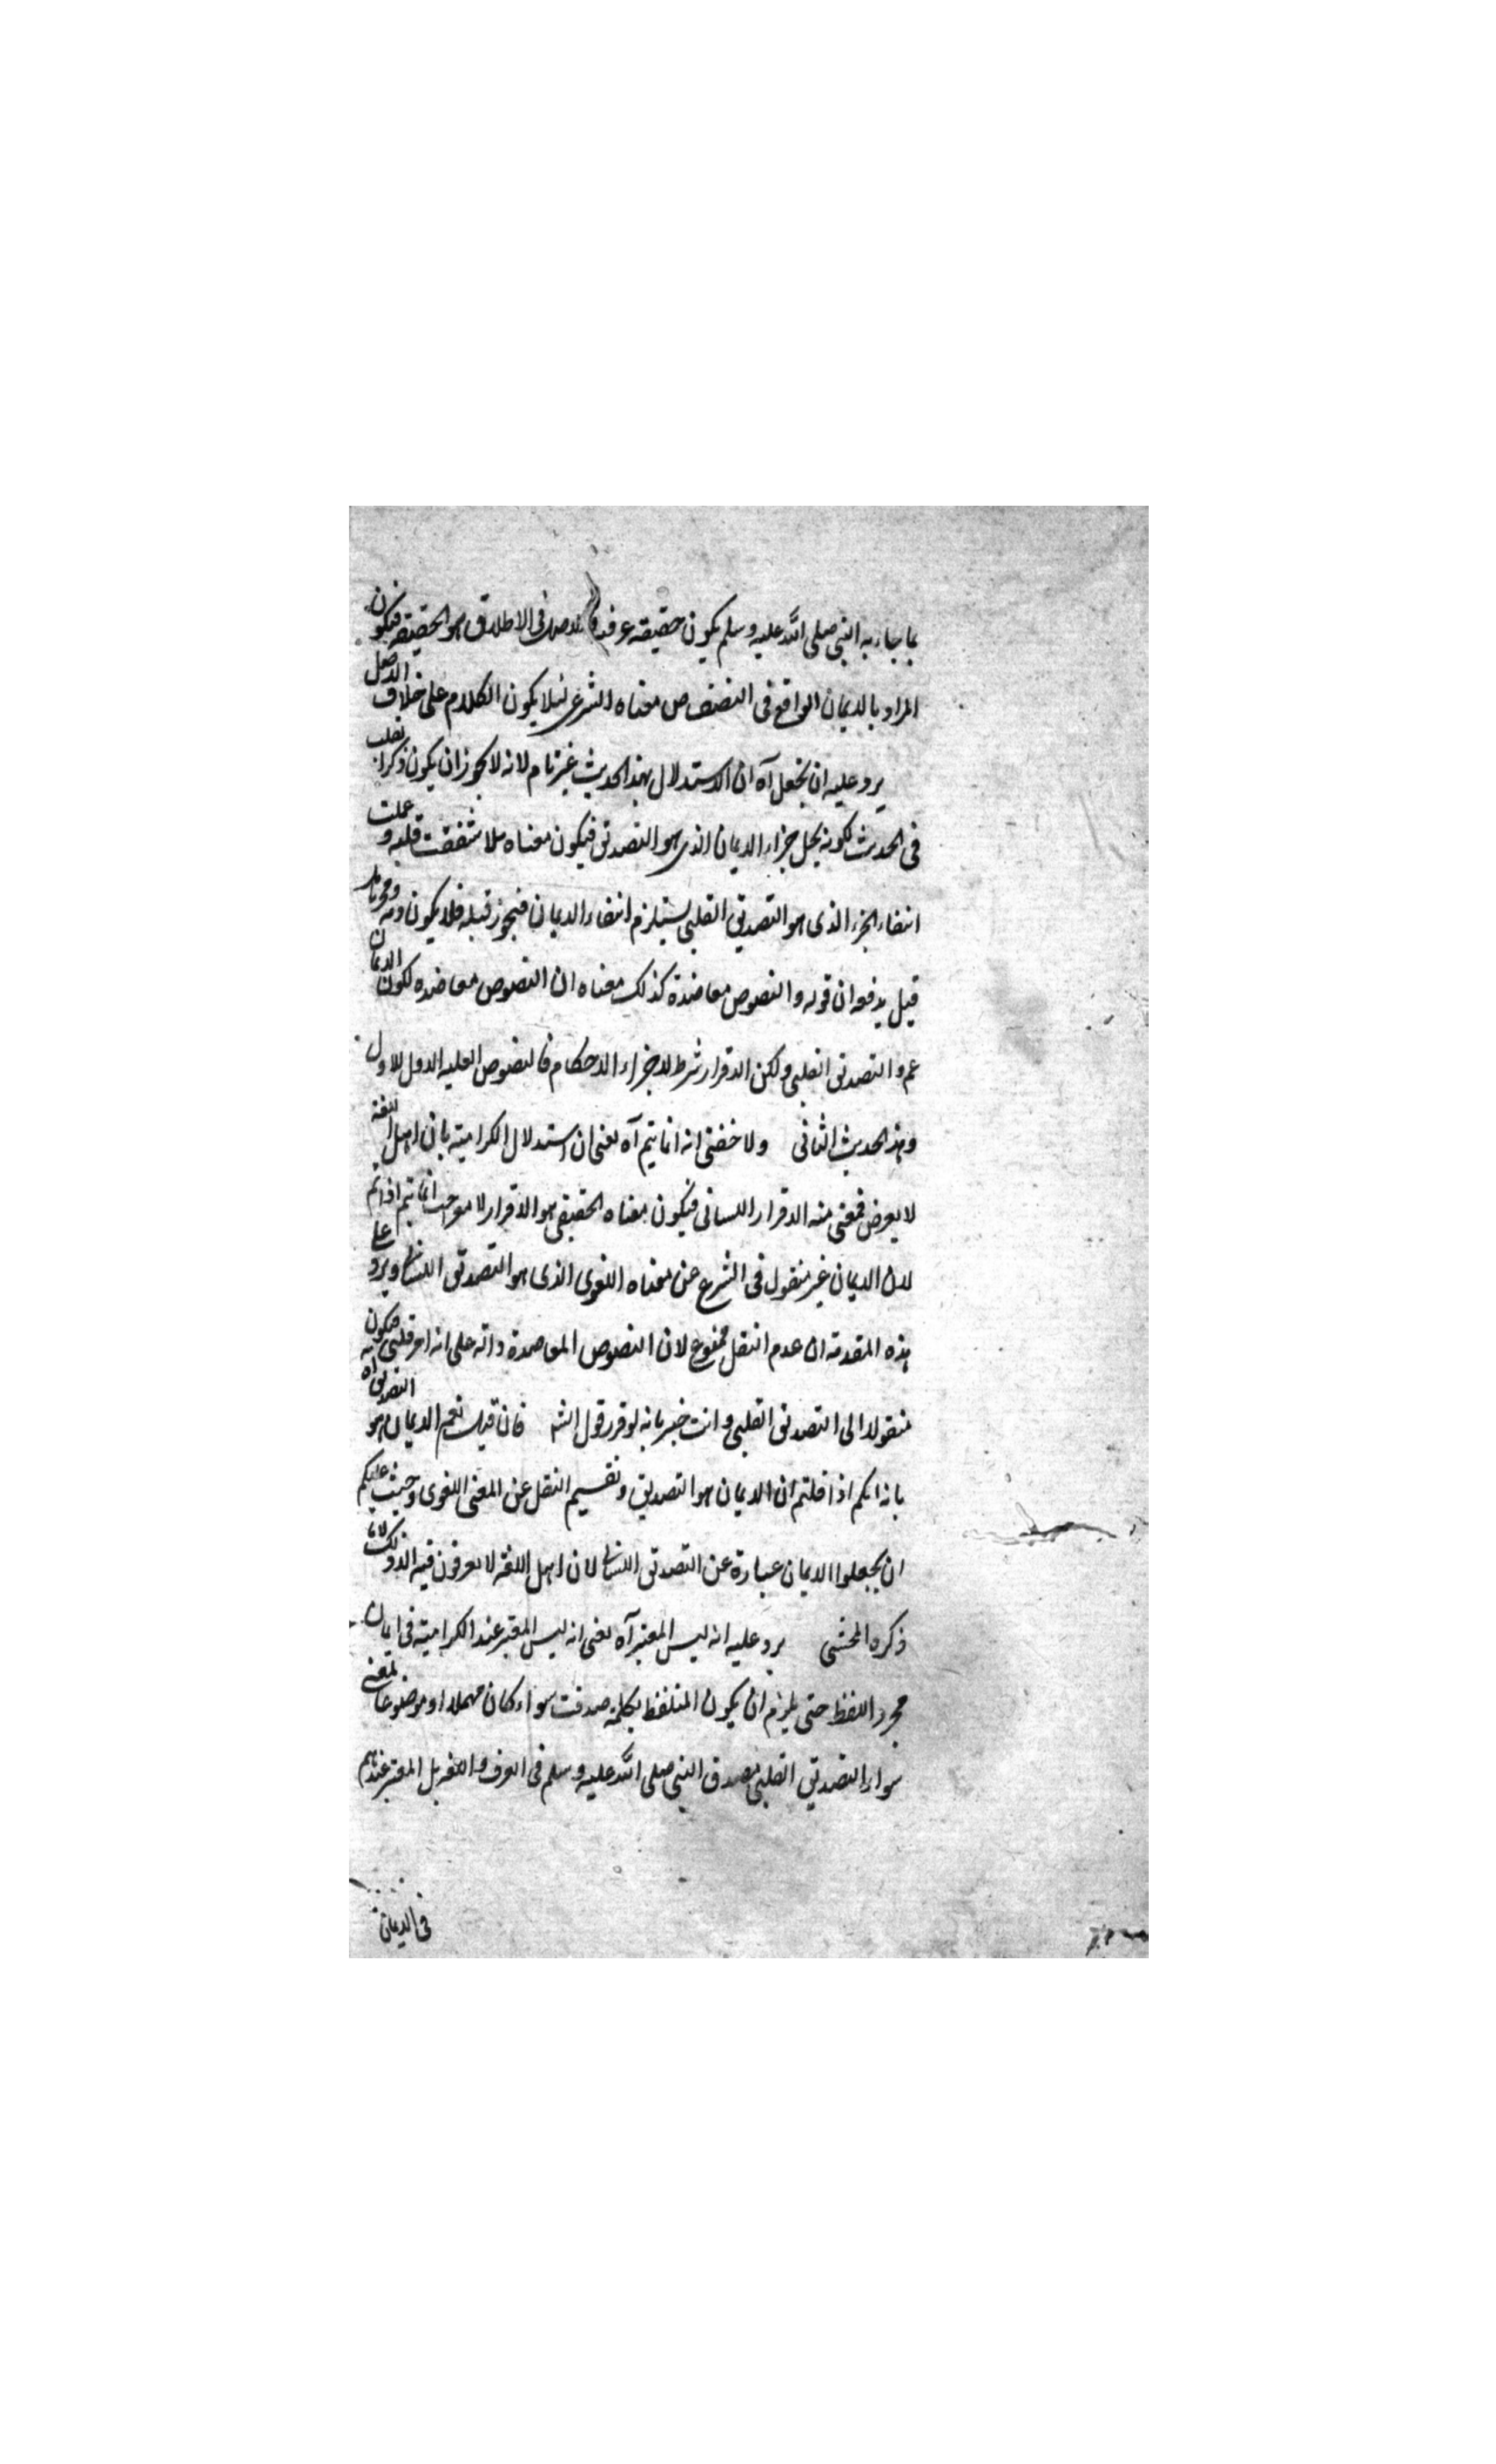 بما جاء به النبي صلى الله عليه وسلم يكون حقيقة عرفية والاصل في الاطلاق هو الحقيقة فيكون
المراد بالايمان الواقع في النصوص معناه الشرعي لئلا يكون الكلام على خلاف الاصل
يرد عليه ان نجعل آه ان الاستدلال بهذا الحديث غير تام لانه لا يجوز ان يكون ذكر القلب
في الحديث لكونه محل جزء الايمان الذي هو التصديق فيكون معناه هلا شققت قلبه وعملت
انتفاء الجزء الذي هو التصديق القلبي يستلزم انتفاء الايمان فيجوز قتله فلا يكون دمه
قيل يدفعه ان قوله والنصوص معاضدة كذلك معناه ان النصوص معاضدة لكون الايمان
هو التصديق القلبي ولكن الاقرار شرط لاجراء الاحكام فالنصوص الاول للاول
وهذا الحديث الثاني ولا خفى انه انما يتم آه يعني ان استدلال الكرامية بان اهل اللغة
لا يعرض منه الاقرار اللساني فيكون معناه الحقيقي هو الاقرار لا انما يتم اذا لم
لان الايمان غير منقول في الشرع عن معناه اللغوي الذي هو التصديق اللساني ويرد على
هذه المقدمة ان عدم النقل ممنوع لان النصوص المعاضدة دالة على انه امر قلبي فيكون
منقولا الى التصديق القلبي وانت خبير بانه لو قرر قول الشـ فان قيل نعم الايمان هو التصديق آه
بانكم اذا قلتم ان الايمان هو التصديق النقل عن المعنى اللغوي وجب عليكم
ان يجعلوا الايمان عبارة عن التصديق اللساني لان اهل اللغة لا يعرفون فيه الا ذلك
ذكره المحشي يرد عليه انه ليس المعتبر آه يعني انه ليس المعتبر عند الكرامية في ايمان
مجرد اللفظ حتى يلزم ان يكون المتلفظ بكلمة صدقت سواء كان مهملا او موضوعا لمعنى
سواء التصديق القلبي مصدق النبي صلى الله عليه وسلم في العرف واللغة بل المعتبر عندهم
في الايمان